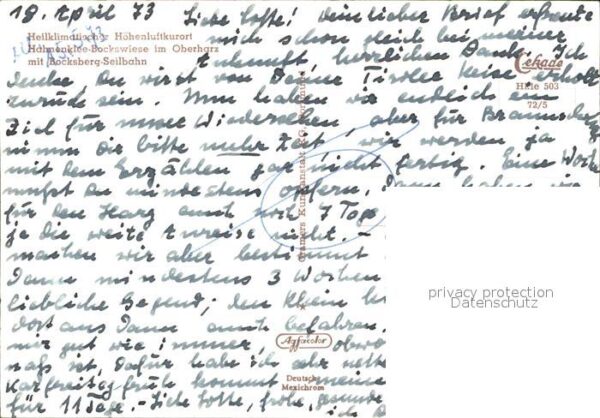 18. April 73
Liebe Lotte! Dein lieber Brief erfreute
mich schon gleich bei meiner
Ankunft, herzlichen Dank. Ich
denke, Du wirst von Deiner Tiroler Reise erholt
zurück sein. Nun haben wir endlich ein
Ziel für unser Wiedersehen, aber für Braunschw
nimm Dir bitte mehr Zeit, wir werden ja
mit dem Erzählen gar nicht fertig. Eine Woche
mußt Du mindestens opfern. Dann haben wir
für den Harz auch noch 7 Tage
ja die weite Anreise nicht. -
machen wir aber bestimmt
Dann mindestens 3 Wochen
liebliche Gegend; den Rhein
dort aus dann auch befahren.
mir gut wie immer, obwo
naß ist, dafür habe ich sehr nette
Karfreitag früh kommt meine
für 11 Tage. - Liebe Lotte, frohe, gesunde
Heilklimatischer Höhenluftkurort
Hahnenklee-Bockswiese im Oberharz
mit Bocksberg-Seilbahn
Cekade
HKle 503
72/5
Cramers Kunstanstalt KG, Dortmund
Agfacolor
Deutsche
Mexichrom
privacy protection
Datenschutz